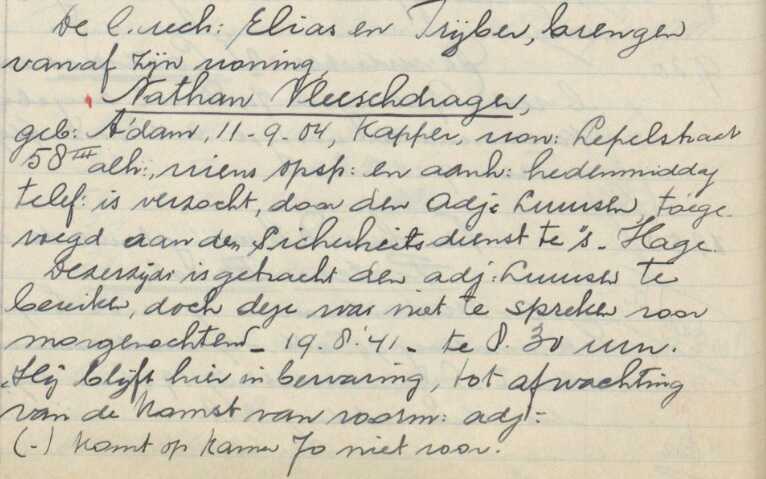 De C. rech: Elias en Trijber, brengen
vanaf zijn woning,
Nathan Vleeschdrager,
geb: A'dam, 11-9-04, Kapper, won: Lepelstraat
58III alh:, wiens opsp: en aanh: hedenmiddag
telef: is verzocht, door den Adj: Luuwsen, toege-
voegd aan den Sicherheitsdienst te 's-Hage.
Dezerzijds is getracht den adj: Luuwsen te
bereiken, doch deze was niet te spreken voor
morgenochtend - 19.8.'41 - te 8.30 uur.
Hij blijft hier in bewaring, tot afwachting
van de komst van voorm: adj:
(-) Komt op Kamer 70 niet voor.